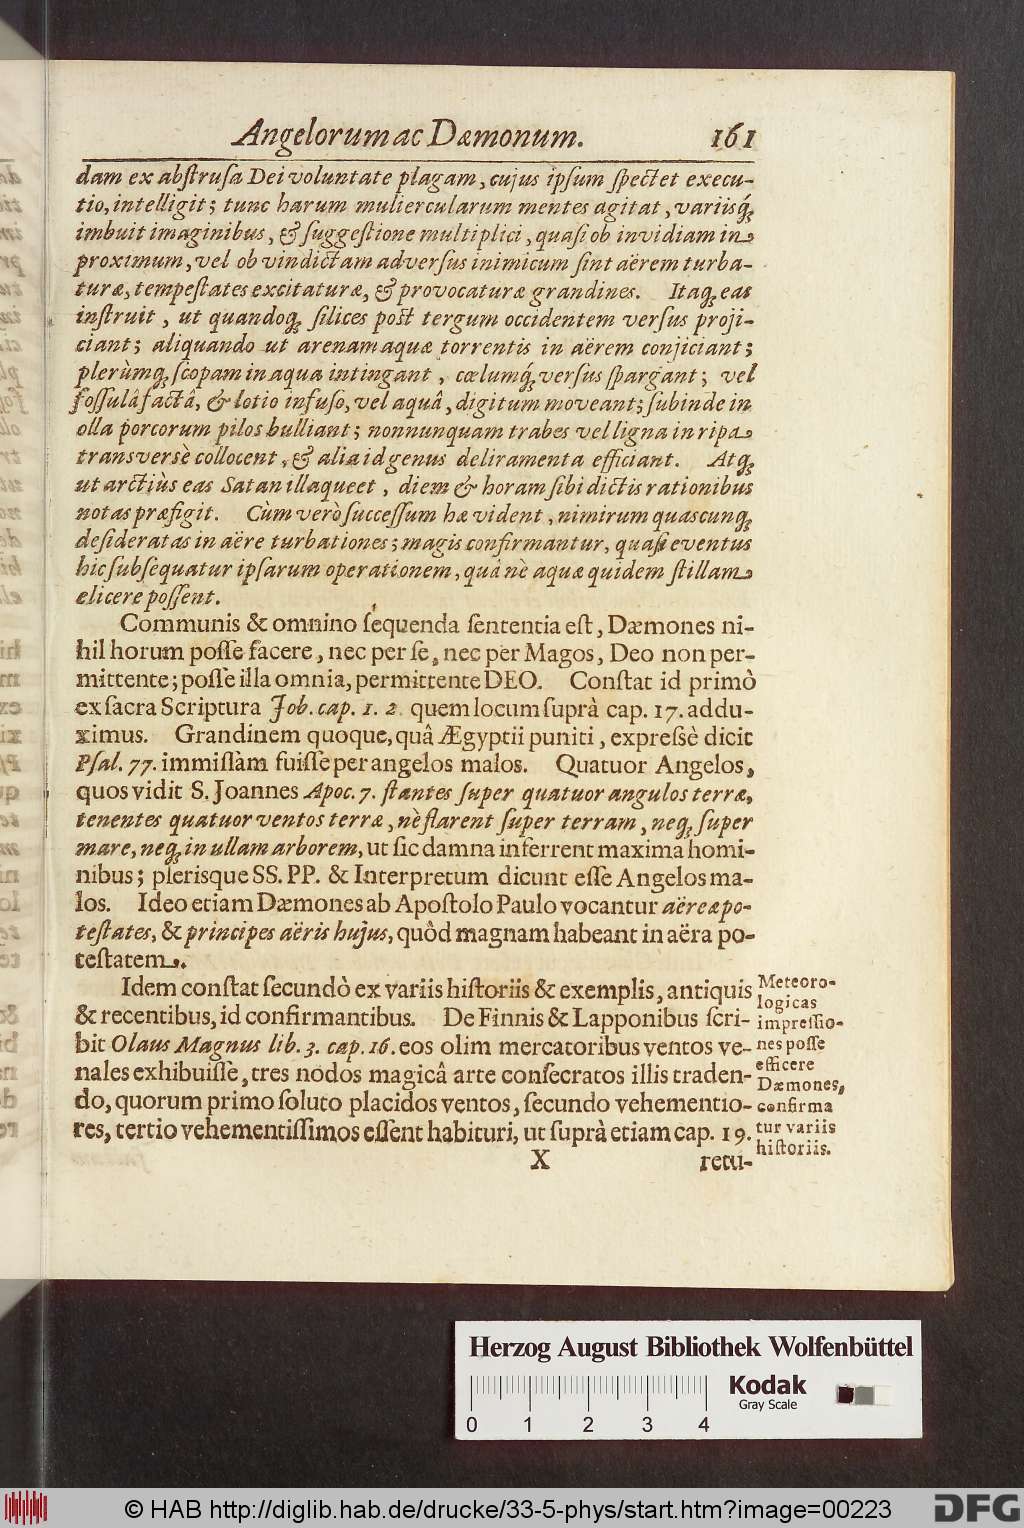 Angelorum ac Dæmonum. 161
dam ex abſtruſa Dei voluntate plagam, cujus ipſum ſpectet execu-
tio, intelligit; tunc harum muliercularum mentes agitat, variisq́;
imbuit imaginibus, & ſuggeſtione multiplici, quaſi ob invidiam in
proximum, vel ob vindictam adverſus inimicum ſint aërem turba-
turæ, tempeſtates excitaturæ, & provocaturæ grandines. Itaq; eas
inſtruit, ut quandoq; ſilices poſt tergum occidentem verſus proji-
ciant; aliquando ut arenam aquæ torrentis in aërem conjiciant;
plerùmq; ſcopam in aqua intingant, cœlumq́; verſus ſpargant; vel
foſſulâ factâ, & lotio infuſo, vel aquâ, digitum moveant; ſubinde in
olla porcorum pilos bulliant; nonnunquam trabes vel ligna in ripa
transversè collocent, & alia id genus deliramenta efficiant. Atq;
ut arctiùs eas Satan illaqueet, diem & horam ſibi dictis rationibus
notas præfigit. Cùm verò ſucceſſum hæ vident, nimirum quascunq;
deſideratas in aëre turbationes; magis confirmantur, quaſi eventus
hic ſubſequatur ipſarum operationem, quâ nè aquæ quidem ſtillam
elicere poſſent.
Communis & omnino ſequenda ſententia eſt, Dæmones ni-
hil horum poſſe facere, nec per ſe, nec per Magos, Deo non per-
mittente; poſſe illa omnia, permittente DEO. Conſtat id primò
ex ſacra Scriptura Job. cap. 1. 2. quem locum ſuprà cap. 17. addu-
ximus. Grandinem quoque, quâ Ægyptii puniti, expreſsè dicit
Pſal. 77. immiſſam fuiſſe per angelos malos. Quatuor Angelos,
quos vidit S. Joannes Apoc. 7. ſtantes ſuper quatuor angulos terræ,
tenentes quatuor ventos terræ, nè flarent ſuper terram, neq; ſuper
mare, neq; in ullam arborem, ut ſic damna inferrent maxima homi-
nibus; plerisque SS. PP. & Interpretum dicunt eſſe Angelos ma-
los. Ideo etiam Dæmones ab Apoſtolo Paulo vocantur aëreæ po-
teſtates, & principes aëris hujus, quòd magnam habeant in aëra po-
teſtatem.
Idem conſtat ſecundò ex variis hiſtoriis & exemplis, antiquis
& recentibus, id confirmantibus. De Finnis & Lapponibus ſcri-
bit Olaus Magnus lib. 3. cap. 16. eos olim mercatoribus ventos ve-
nales exhibuiſſe, tres nodos magicâ arte conſecratos illis traden-
do, quorum primo ſoluto placidos ventos, ſecundo vehementio-
res, tertio vehementiſſimos eſſent habituri, ut ſuprà etiam cap. 19.
Meteoro-
logicas
impreſſio-
nes poſſe
efficere
Dæmones,
confirma
tur variis
hiſtoriis.
X retu-
Herzog August Bibliothek Wolfenbüttel
Kodak
Gray Scale
0 1 2 3 4
© HAB http://diglib.hab.de/drucke/33-5-phys/start.htm?image=00223
DFG